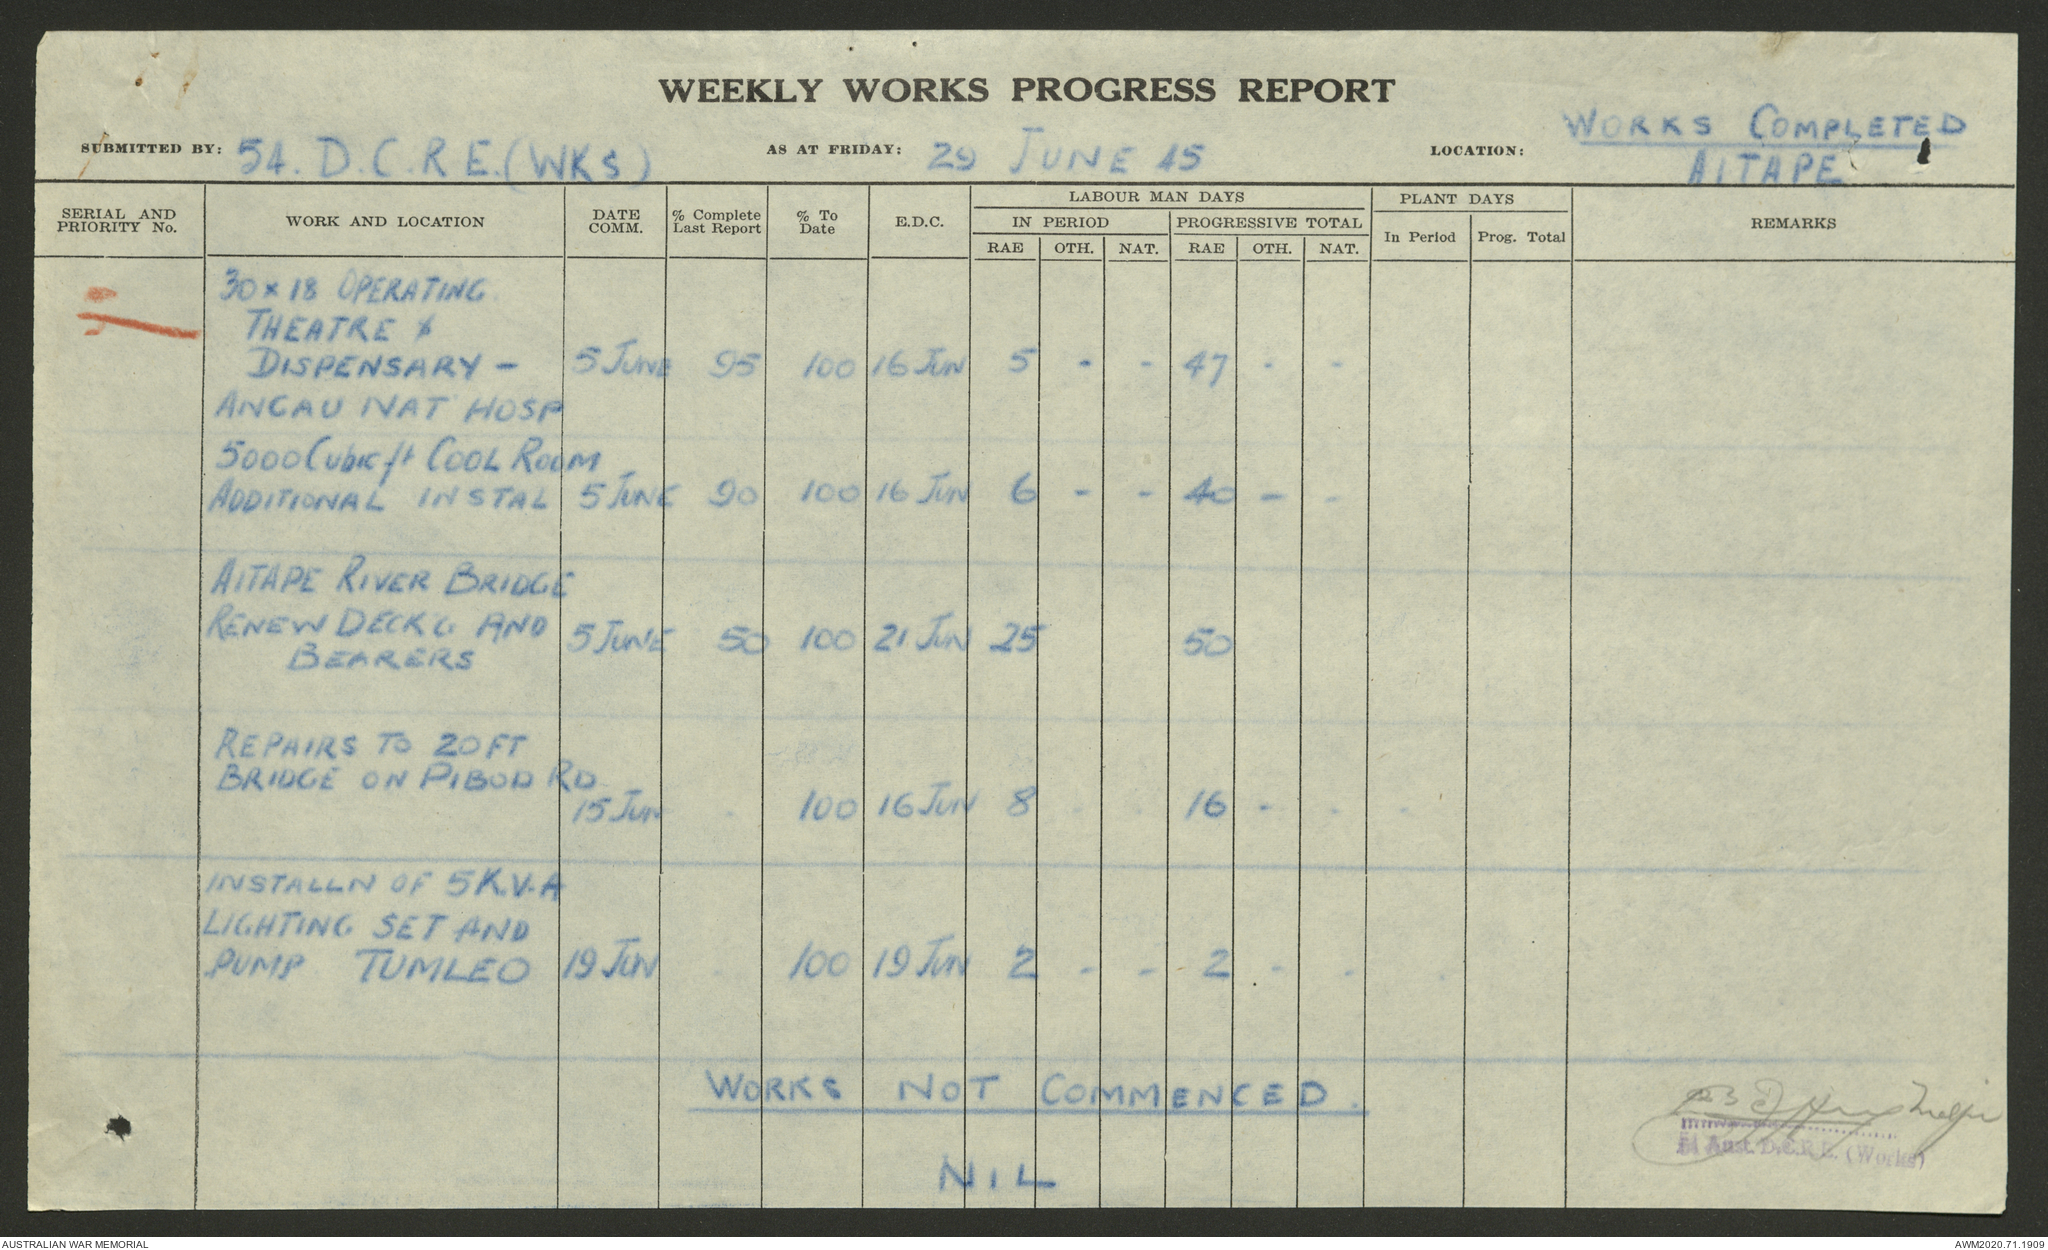 WEEKLY WORKS PROGRESS REPORT
WORKS COMPLETED
SUBMITTED BY: 54. D.C.R.E. (WKS) AS AT FRIDAY: 29 JUNE 45 LOCATION: AITAPE
SERIAL AND PRIORITY No. WORK AND LOCATION DATE COMM. % Complete Last Report % To Date E.D.C. LABOUR MAN DAYS PLANT DAYS REMARKS
IN PERIOD PROGRESSIVE TOTAL In Period Prog. Total
RAE OTH. NAT. RAE OTH. NAT.
30 x 18 OPERATING
THEATRE &
DISPENSARY - 5 JUNE 95 100 16 JUN 5 - - 47 - -
ANGAU NAT HOSP
5000 Cubic ft COOL ROOM
ADDITIONAL INSTAL 5 JUNE 90 100 16 JUN 6 - - 40 - -
AITAPE RIVER BRIDGE
RENEW DECK'G AND 5 JUNE 50 100 21 JUN 25 50
BEARERS
REPAIRS TO 20FT
BRIDGE ON PIBOD RD
15 JUN - 100 16 JUN 8 - - 16 - - -
INSTALLN OF 5 K.V.A
LIGHTING SET AND
PUMP TUMLEO 19 JUN - 100 19 JUN 2 - - 2 - - -
WORKS NOT COMMENCED.
NIL
54 Aust. D.C.R.E. (Works)
AUSTRALIAN WAR MEMORIAL
AWM2020.71.1909